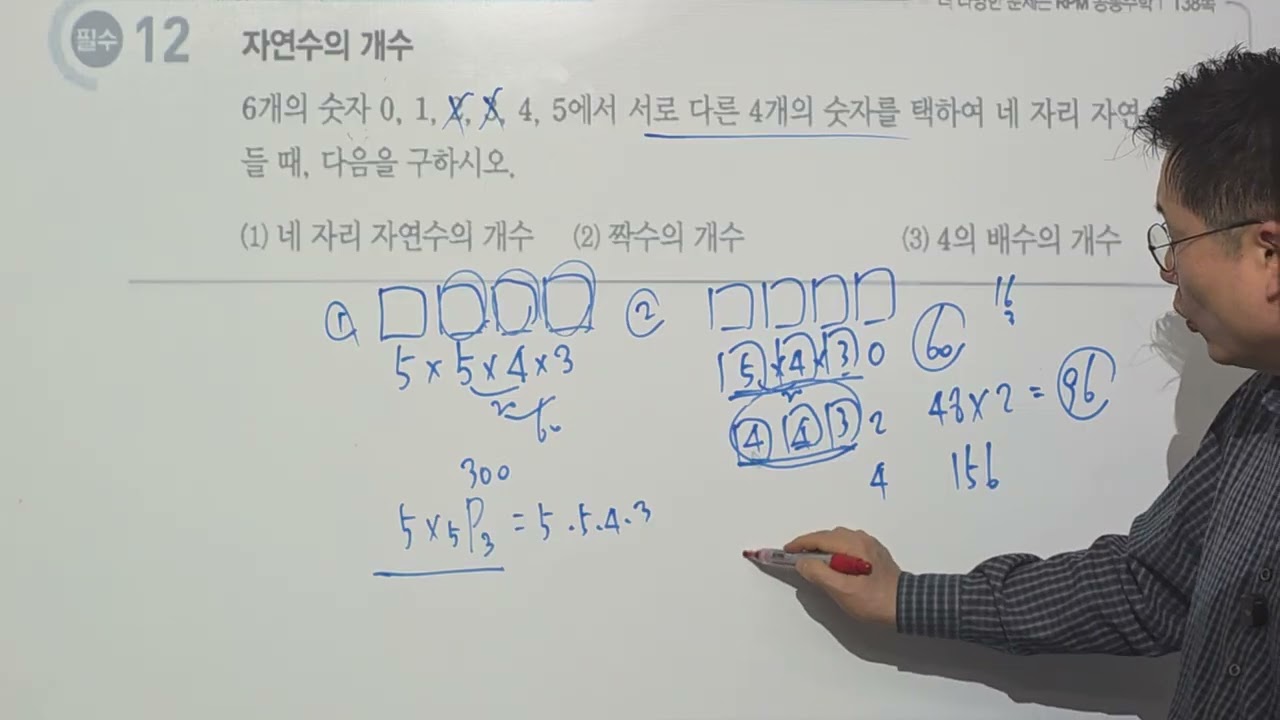 더 다양한 문제는 RPM 공통수학 138쪽
필수 12 자연수의 개수
6개의 숫자 0, 1, 2, 3, 4, 5에서 서로 다른 4개의 숫자를 택하여 네 자리 자연
들 때, 다음을 구하시오.
(1) 네 자리 자연수의 개수 (2) 짝수의 개수 (3) 4의 배수의 개수
① □ □ □ □
5 × 5 × 4 × 3
60
300
5 × ₅P₃ = 5 · 5 · 4 · 3
② □ □ □ □
5 × 4 × 3 0 60
4 4 3 2 48 × 2 = 96
4 156
16